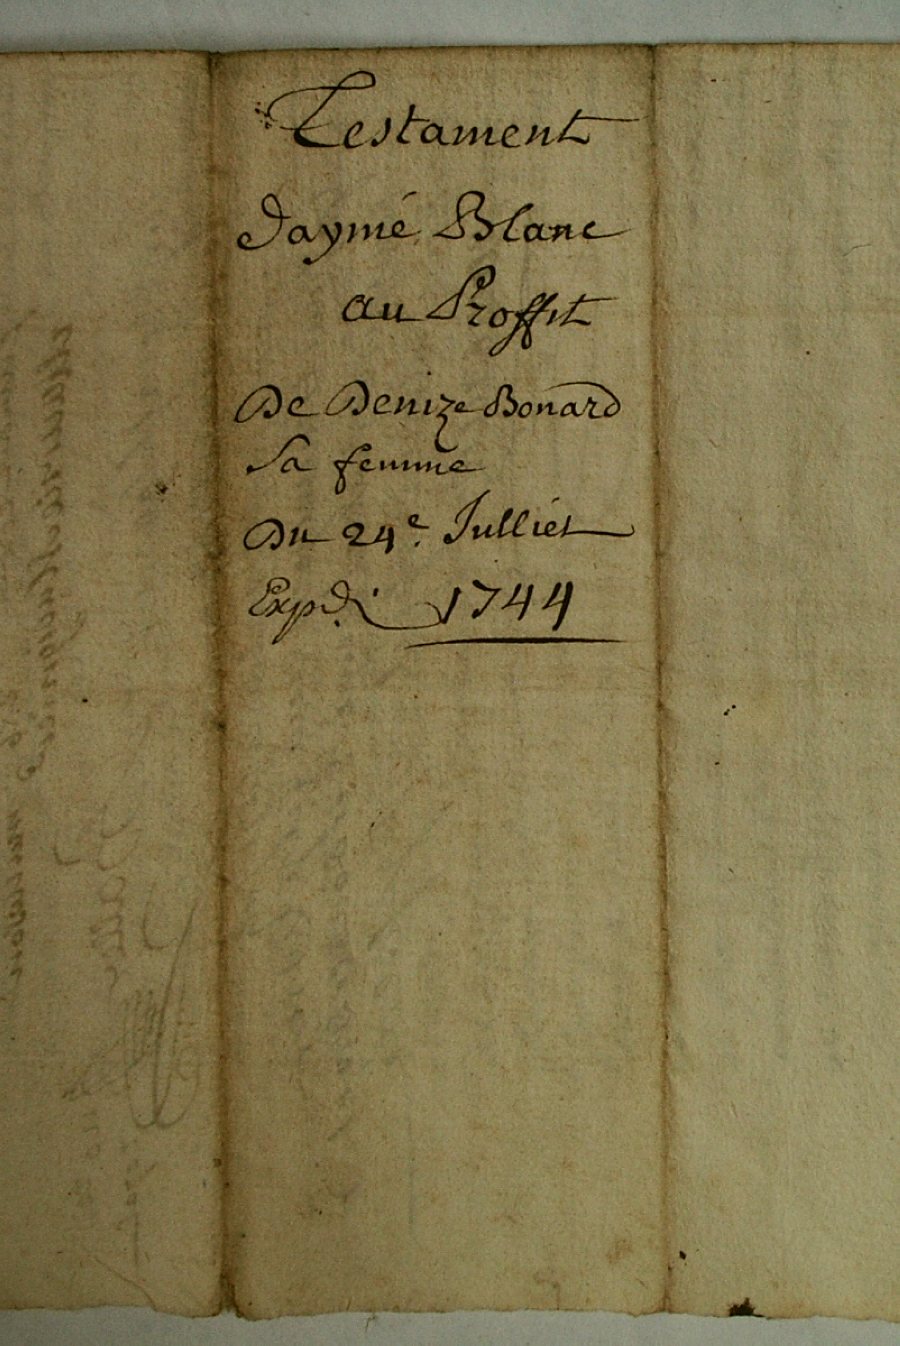 Testament
Jaymé Blanc
au Proffit
De Denize Bonard
Sa femme
Du 24e. Julliet
Expdi. 1744